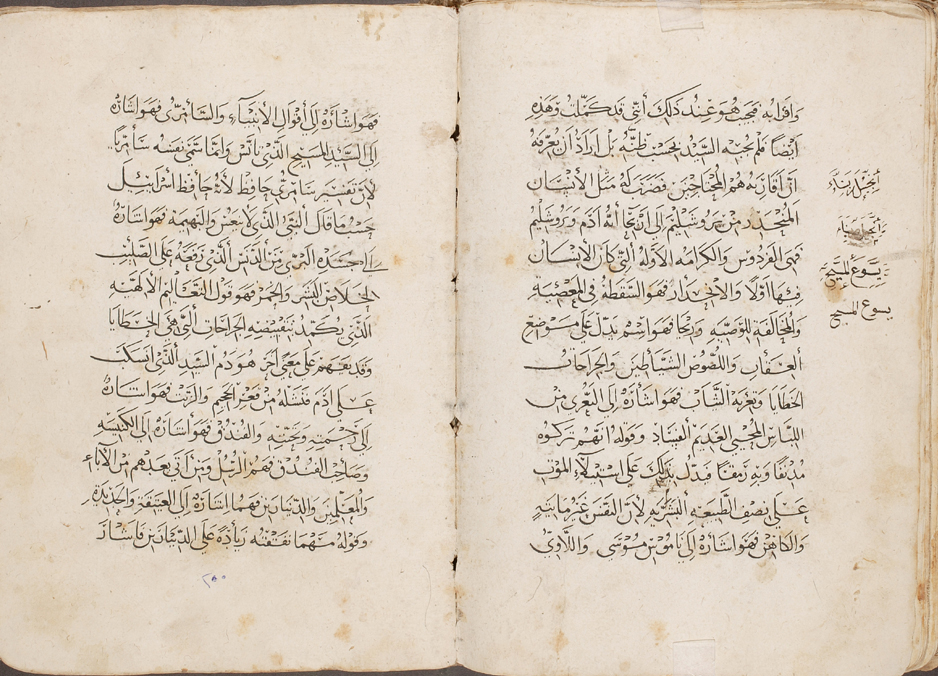 واقرابه فيجب هو عند ذلك أنني قد كملت وهذه
أيضاً فلم يجبه السيد بحسب ظنه بل أراد أن يعرفه
أن أقاربه هم المحتاجين فضرب له مثل الانسان
المنحدر من يروشليم إلى أريحا أنه ادم ويروشليم
فهي الفردوس والكرامه الأوله التي كان الانسان
فيها أولاً والانحدار فهو السقطه في المعصيه
والمخالفه للوصيه واريحا فهو اسم يدل على موضع
العقاب واللصوص الشياطين والجراحات
الخطايا وتعرية الثياب فهو اشارة إلى التعري من
اللباس المحيي العديم الفساد وقوله انهم تركوه
مدنفاً وبه رمقاً فيدل بذلك على استيلاء الموت
على نصف الطبيعه البشريه لأن النفس غير مايته
والكاهن فهو اشارة إلى ناموس موسى واللاوي
يسوع المسيح
يسوع المسيح
فهو اشارة إلى أقوال الأنبياء والسامري فهو اشارة
إلى السيد المسيح الذي تانس وانما سمى نفسه سامرياً
لان تفسير سامري حافظ لأنه حافظ اسرائيل
حسب ما قال النبي الذي لا ينعس والبهيمه فهو اشارة
إلى جسده البري من الدنس الذي رفعه على الصليب
لخلاص البشر والخمر فهو قول التعاليم الالهيه
الذي يكمد بتقبيضه الجراحات التي هي الخطايا
وقد يفهم على معنى اخر هو دم السيد الذي انسكب
على ادم فنشله من قعر الجحيم والزيت فهو اشارة
إلى رحمته ومحبته والفندق فهو اشارة إلى الكنيسه
وصاحب الفندق فهم الرسل ومن أتى بعدهم من الاباء
والمعلمين والديناريين فهما اشارة إلى العتيقه والجديده
وقوله مهما نفقته زيادة على الديناريين فاشار
٢٥٥